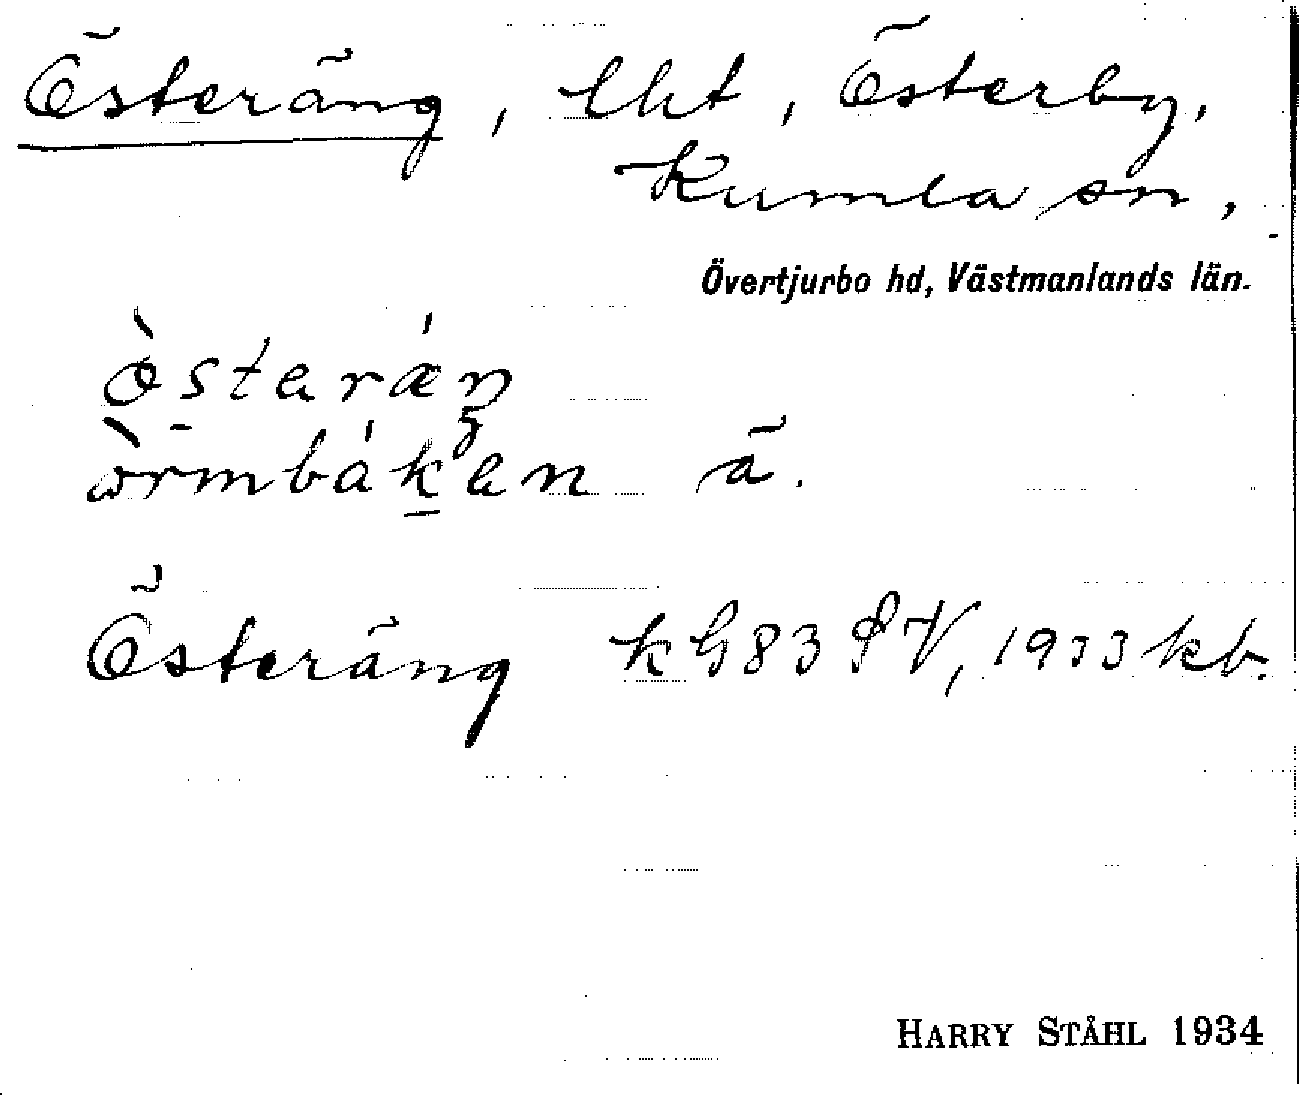 Österäng, lht, Österby,
Kumla sn,
Övertjurbo hd, Västmanlands län.
òsteræ´ŋ
òrmbáken ä.
Österäng k G83 SV, 1933 kb.
HARRY STÅHL 1934